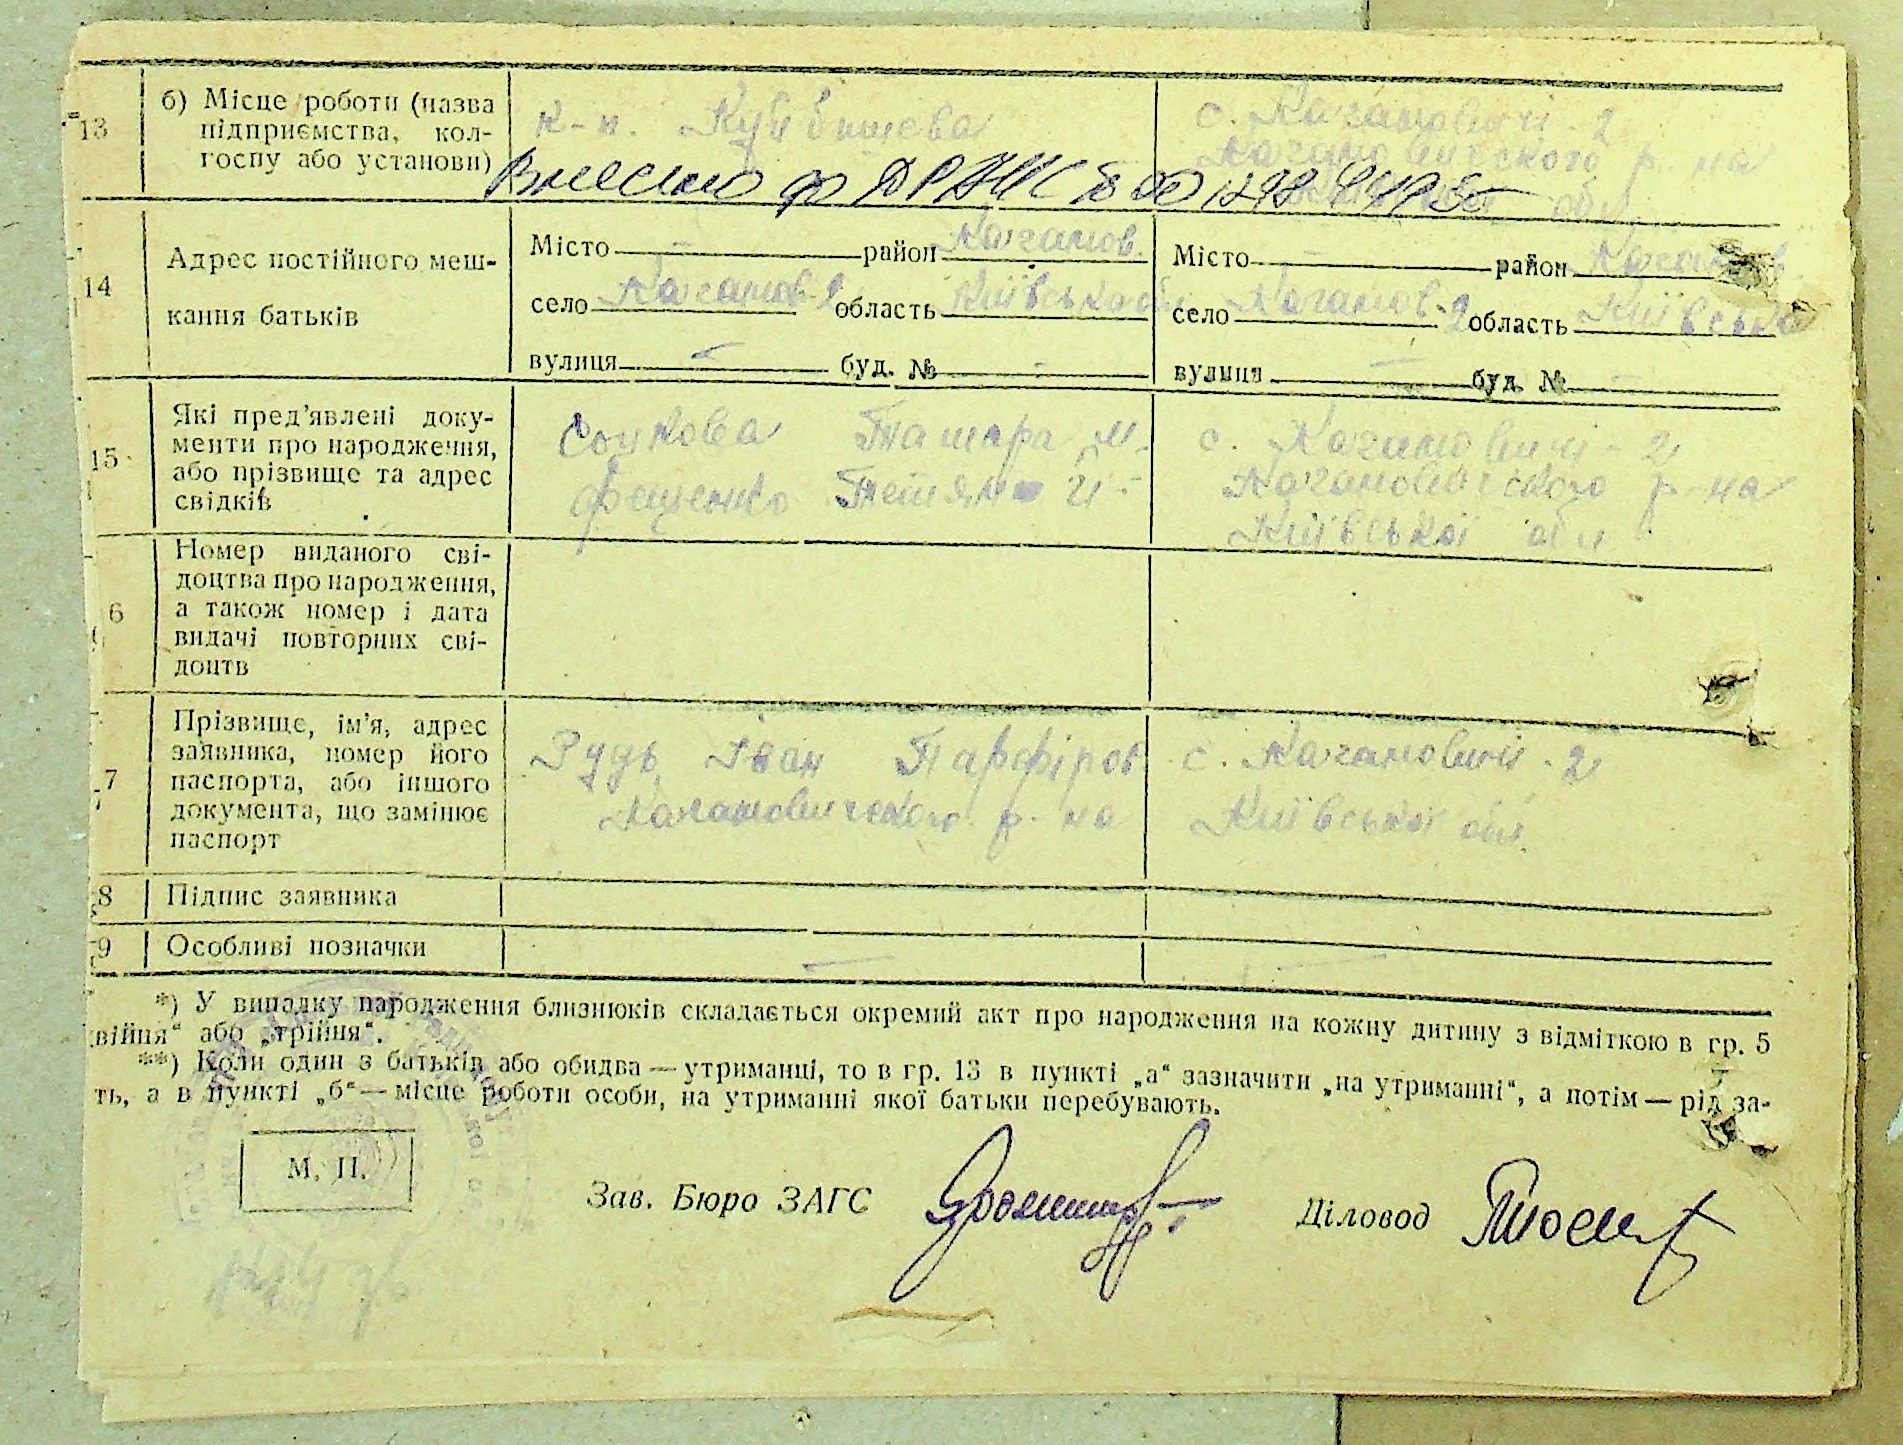 13 б) Місце роботи (назва підприємства, колгоспу або установи)
к-п. Куйбишева
с. Кагановичі - 2
Кагановичского р-на
обл
Внесено до ДРАЦС
14 Адрес постійного мешкання батьків
Місто — район Каганов.
село Каганов-2 область Київська обл
вулиця — буд. № -
Місто — район Каганов.
село Каганов-2 область Київська
вулиця — буд. № -
15 Які пред'явлені документи про народження, або прізвище та адрес свідків
Сочкова Тамара М.
Фещенко Тетяна
с. Кагановичі - 2
Кагановичского р-на
Київської обл
6 Номер виданого свідоцтва про народження, а також номер і дата видачі повторних свідоцтв
7 Прізвище, ім'я, адрес заявника, номер його паспорта, або іншого документа, що замінює паспорт
Рудь Іван Парфіров
Кагановичского р-на
с. Кагановичі - 2
Київської обл.
8 Підпис заявника
9 Особливі позначки
*) У випадку народження близнюків складається окремий акт про народження на кожну дитину з відміткою в гр. 5
війня" або „трійня".
**) Коли один з батьків або обидва — утриманці, то в гр. 13 в пункті „а" зазначити „на утриманні", а потім — рід за-
ть, а в пункті „б" — місце роботи особи, на утриманні якої батьки перебувають.
М. П.
Зав. Бюро ЗАГС
Діловод